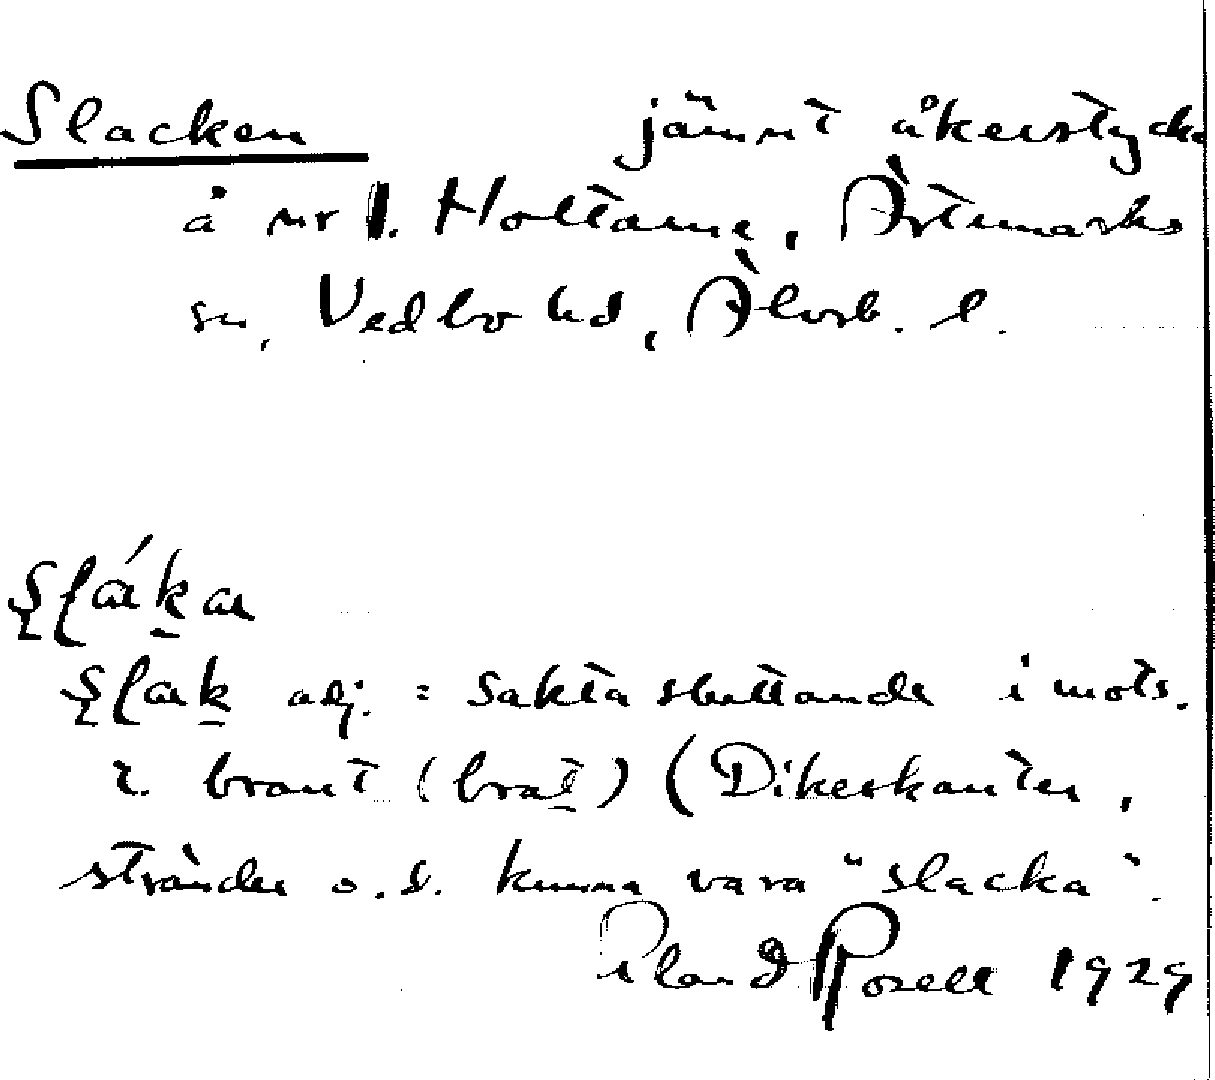 Slacken jämnt åkerstycke
å nr 1. Holtarne, Ärtemarks
sn, Vedbo hd, Älvsb. l.
adj. = sakta sluttande i mots.
t. brant (brat) (Dikeskanter,
stränder o.d. kunna vara "slacka".
Rosell 1929